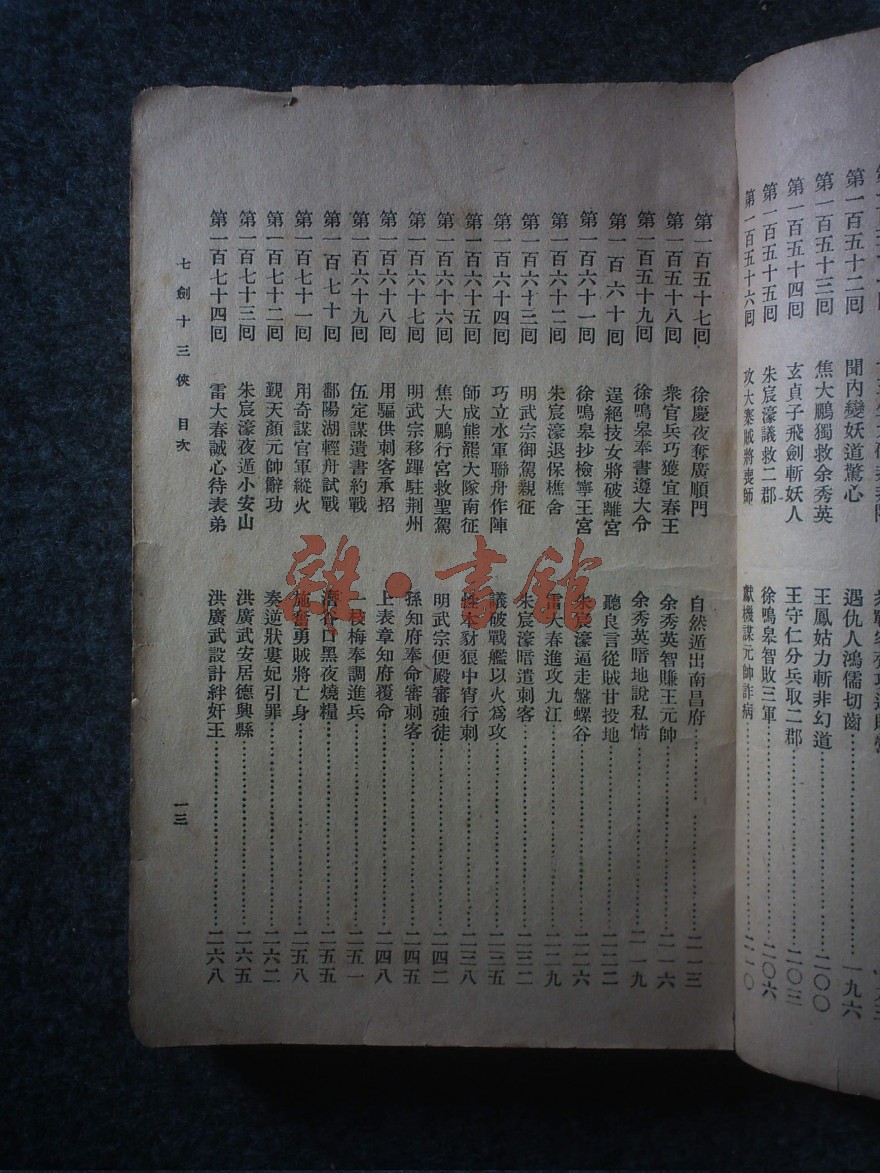 第一百五十二囘　聞內變妖道驚心　遇仇人鴻儒切齒……一九六
第一百五十三囘　焦大鵬獨救余秀英　王鳳姑力斬非幻道……二〇〇
第一百五十四囘　玄貞子飛劍斬妖人　王守仁分兵取二郡……二〇三
第一百五十五囘　朱宸濠議救二郡　徐鳴皋智敗三軍……二〇六
第一百五十六囘　攻大寨賊將喪師　獻機謀元帥詐病……二一〇
第一百五十七囘　徐慶夜奪廣順門　自然遁出南昌府……二一三
第一百五十八囘　衆官兵巧獲宜春王　余秀英智賺王元帥……二一六
第一百五十九囘　徐鳴皋奉書遵大令　余秀英暗地說私情……二一九
第一百六十囘　逞絕技女將破離宮　聽良言從賊甘投地……二二二
第一百六十一囘　徐鳴皋抄檢寧王宮　朱宸濠逼走盤螺谷……二二六
第一百六十二囘　朱宸濠退保樵舍　雷大春進攻九江……二二九
第一百六十三囘　明武宗御駕親征　朱宸濠暗遣刺客……二三二
第一百六十四囘　巧立水軍聯舟作陣　議破戰艦以火爲攻……二三五
第一百六十五囘　師成熊羆大隊南征　性本豺狼中宵行刺……二三八
第一百六十六囘　焦大鵬行宮救聖駕　明武宗便殿審強徒……二四二
第一百六十七囘　明武宗移蹕駐荆州　孫知府奉命審刺客……二四五
第一百六十八囘　用驅供刺客承招　上表章知府覆命……二四八
第一百六十九囘　伍定謀遺書約戰　一枝梅奉調進兵……二五一
第一百七十囘　鄱陽湖輕舟試戰　潛谷口黑夜燒糧……二五五
第一百七十一囘　用奇謀官軍縱火　施奮勇賊將亡身……二五八
第一百七十二囘　覲天顏元帥辭功　奏逆狀婁妃引罪……二六二
第一百七十三囘　朱宸濠夜遁小安山　洪廣武安居德興縣……二六五
第一百七十四囘　雷大春誠心待表弟　洪廣武設計絆奸王……二六八
七劍十三俠　目次　一三
雜·書館